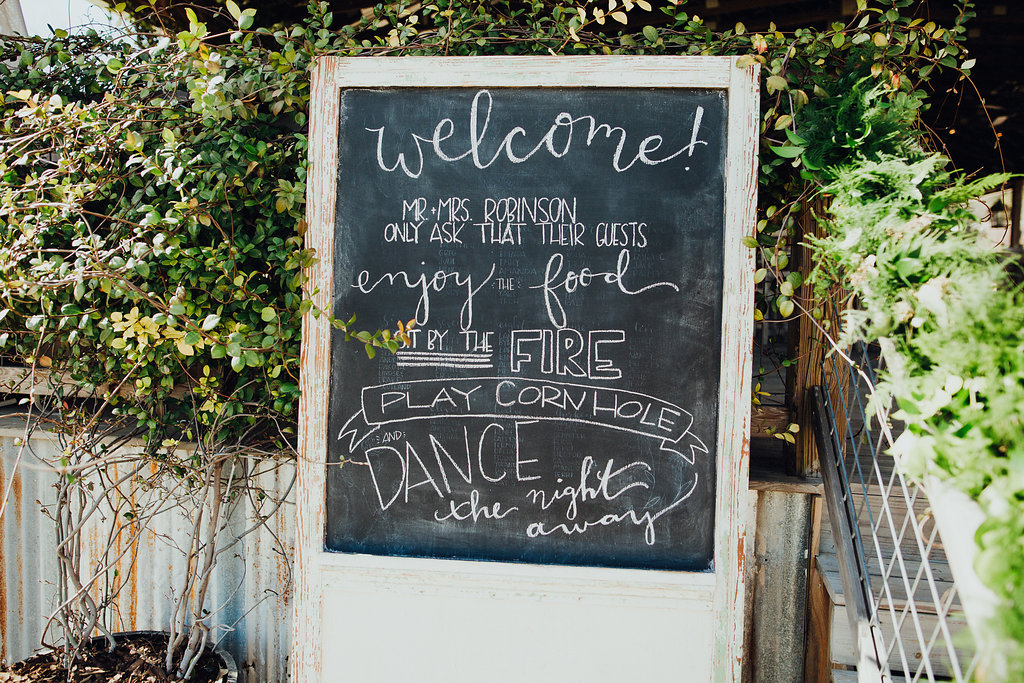 welcome!
MR. + MRS. ROBINSON
ONLY ASK THAT THEIR GUESTS
enjoy THE food
SIT BY THE FIRE
PLAY CORNHOLE
AND DANCE
the night
away